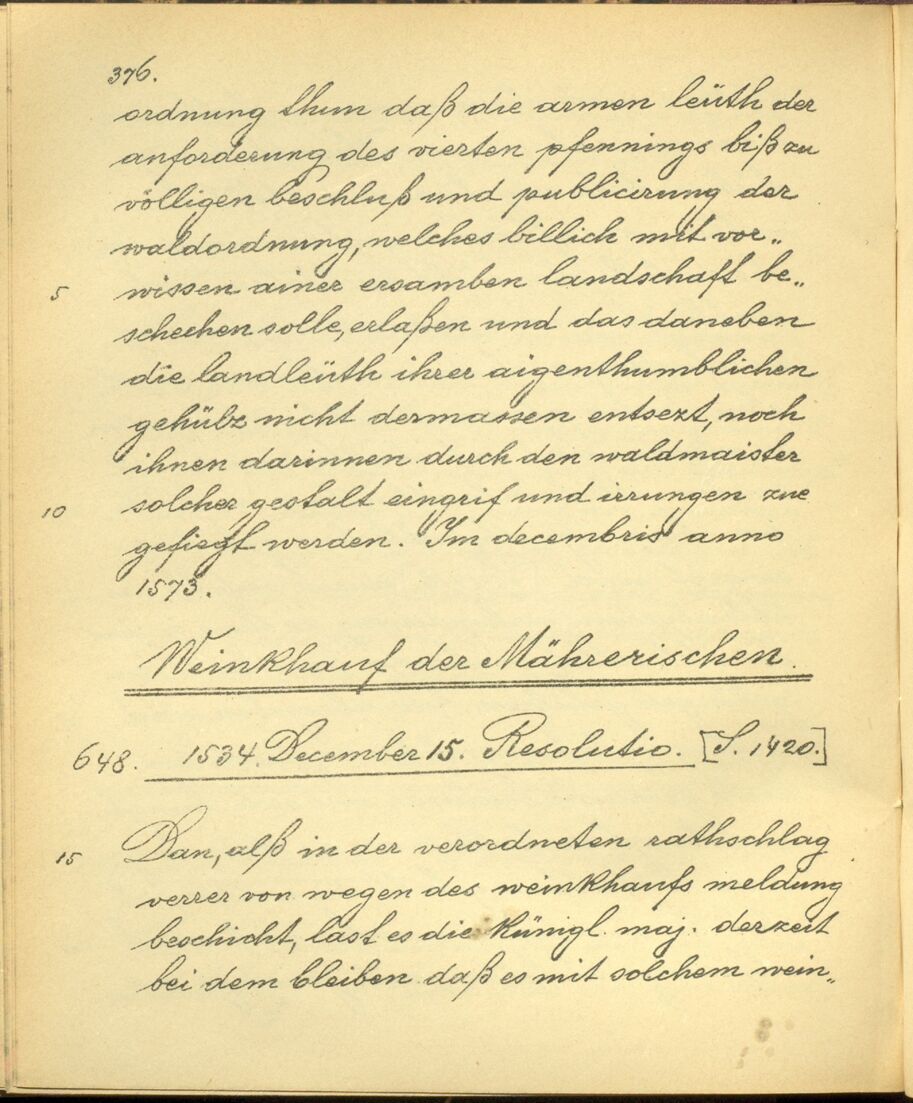 376.
ordnung thun daß die armen leüth der
anforderung des vierten pfennings biß zu
völligen beschluß und publicirung der
waldordnung, welches billich mit vor„
5 wissen ainer ersamben landschaft be„
schechen solle, erlaßen und das daneben
die landleüth ihrer aigenthumblichen
gehülz nicht dermassen entsezt, noch
ihnen darinnen durch den waldmaister
10 solcher gestalt eingrif und irrungen zue
gefiegt werden. Im decembris anno
1573.
Weinkhauf der Mährerischen.
648. 1534. December 15. Resolutio. [S. 1420.]
15 Dan, alß in der verordneten rathschlag
verrer von wegen des weinkhaufs meldung
beschicht, last es die künigl. maj. derzeit
bei dem bleiben daß es mit solchem wein„